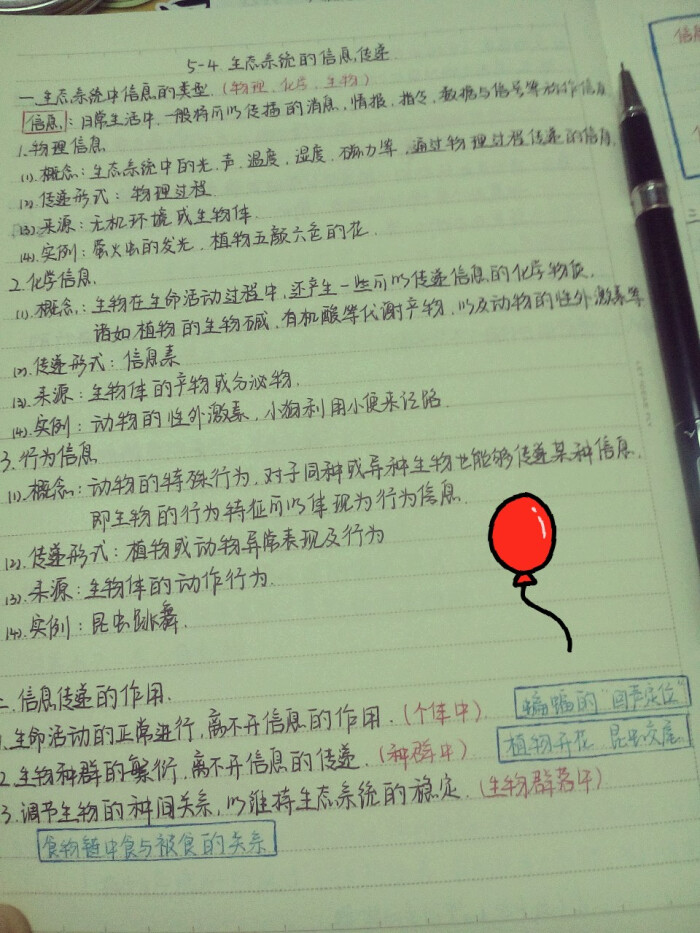 5-4 生态系统的信息传递
一.生态系统中信息的类型.(物理、化学、生物)
信息:日常生活中,一般将可以传播的消息,情报,指令,数据与信号等称作信息
1.物理信息
(1).概念:生态系统中的光、声、温度、湿度、磁力等,通过物理过程传递的信息.
(2).传递形式:物理过程.
(3).来源:无机环境或生物体.
(4).实例:萤火虫的发光、植物五颜六色的花.
2.化学信息.
(1).概念:生物在生命活动过程中,还产生一些可以传递信息的化学物质.
诸如植物的生物碱,有机酸等代谢产物,以及动物的性外激素等
(2).传递形式:信息素
(3).来源:生物体的产物或分泌物.
(4).实例:动物的性外激素,小狗利用小便来记路.
3.行为信息
(1).概念:动物的特殊行为,对于同种或异种生物也能够传递某种信息.
即生物的行为特征可以体现为行为信息.
(2).传递形式:植物或动物异常表现及行为
(3).来源:生物体的动作行为.
(4).实例:昆虫跳舞.
二.信息传递的作用.
1.生命活动的正常进行,离不开信息的作用.(个体中)
蝙蝠的"回声定位"
2.生物种群的繁衍,离不开信息的传递.(种群中)
植物开花,昆虫交尾
3.调节生物的种间关系,以维持生态系统的稳定.(生物群落中)
食物链中食与被食的关系
三